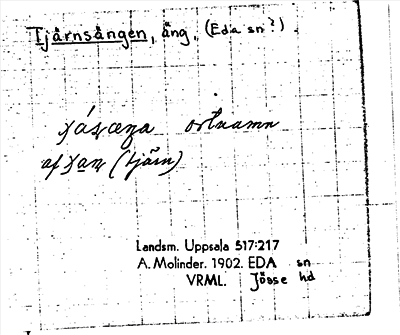 Tjårnsången, äng, (Eda sn?).
ortnamn
af (tjärn)
Landsm. Uppsala 517:217
A. Molinder. 1902. EDA sn
VRML. Jösse hd